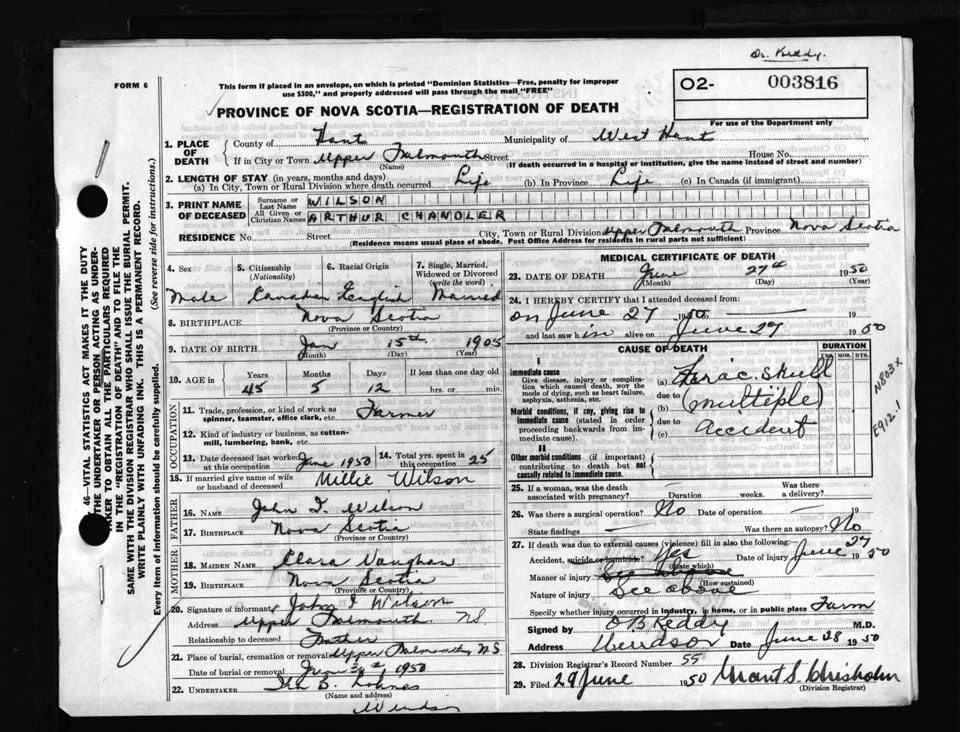 Dr. Reddy.
FORM 6
This form if placed in an envelope, on which is printed "Dominion Statistics—Free, penalty for improper
use $300," and properly addressed will pass through the mail "FREE"
O2- 003816
PROVINCE OF NOVA SCOTIA—REGISTRATION OF DEATH
For use of the Department only
1. PLACE OF DEATH
County of Hants Municipality of West Hants
If in City or Town Upper Falmouth Street House No.
(Name) (If death occurred in a hospital or institution, give the name instead of street and number)
2. LENGTH OF STAY (in years, months and days)
(a) In City, Town or Rural Division where death occurred Life (b) In Province Life (c) In Canada (if immigrant)
3. PRINT NAME OF DECEASED
Surname or Last Name WILSON
All Given or Christian Names ARTHUR CHANDLER
RESIDENCE No. Street City, Town or Rural Division Upper Falmouth Province Nova Scotia
(Residence means usual place of abode. Post Office Address for residents in rural parts not sufficient)
4. Sex
5. Citizenship (Nationality)
6. Racial Origin
7. Single, Married, Widowed or Divorced (write the word)
Male Canadian English Married
8. BIRTHPLACE Nova Scotia
(Province or Country)
9. DATE OF BIRTH Jan 15th 1905
(Month) (Day) (Year)
10. AGE in Years Months Days If less than one day old
45 5 12 hrs. or min.
OCCUPATION
11. Trade, profession, or kind of work as spinner, teamster, office clerk, etc. Farmer
12. Kind of industry or business, as cotton-mill, lumbering, bank, etc.
13. Date deceased last worked at this occupation June 1950 14. Total yrs. spent in this occupation 25
15. If married give name of wife or husband of deceased Millie Wilson
FATHER
16. NAME John I. Wilson
17. BIRTHPLACE Nova Scotia
(Province or Country)
MOTHER
18. MAIDEN NAME Clara Vaughan
19. BIRTHPLACE Nova Scotia
(Province or Country)
20. Signature of informant John I Wilson
Address Upper Falmouth. NS
Relationship to deceased Father
21. Place of burial, cremation or removal Upper Falmouth, NS
Date of burial or removal June 1950
22. UNDERTAKER B.
(Name and address)
Windsor
MEDICAL CERTIFICATE OF DEATH
23. DATE OF DEATH June 27th 1950
(Month) (Day) (Year)
24. I HEREBY CERTIFY that I attended deceased from:
on June 27 1950
and last saw him alive on June 27 1950
CAUSE OF DEATH DURATION
YRS. MOS. DYS.
I
Immediate cause
Give disease, injury or complication which caused death, nor the mode of dying, such as heart failure, asphyxia, asthenia, etc.
(a) Frac Skull
due to
Morbid conditions, if any, giving rise to immediate cause (stated in order proceeding backwards from immediate cause).
(b) (multiple)
due to
(c) Accident
II
Other morbid conditions (if important) contributing to death but not causally related to immediate cause.
N803X
E912.1
25. If a woman, was the death associated with pregnancy? Duration weeks. Was there a delivery?
26. Was there a surgical operation? No Date of operation 19
State findings Was there an autopsy? No
27. If death was due to external causes (violence) fill in also the following:
Accident, suicide or homicide? Yes Date of injury June 27 1950
(State which)
Manner of injury
(How sustained)
Nature of injury See above
Specify whether injury occurred in industry, in home, or in public place Farm
Signed by O B Keddy M.D.
Address Windsor Date June 28 1950
28. Division Registrar's Record Number 55
29. Filed 29 June 1950 Grant S. Chisholm
(Division Registrar)
46—VITAL STATISTICS ACT MAKES IT THE DUTY
THE UNDERTAKER OR PERSON ACTING AS UNDER-
KER TO OBTAIN ALL THE PARTICULARS REQUIRED
IN THE "REGISTRATION OF DEATH" AND TO FILE THE
SAME WITH THE DIVISION REGISTRAR WHO SHALL ISSUE THE BURIAL PERMIT.
WRITE PLAINLY WITH UNFADING INK. THIS IS A PERMANENT RECORD.
Every item of information should be carefully supplied. (See reverse side for instructions.)